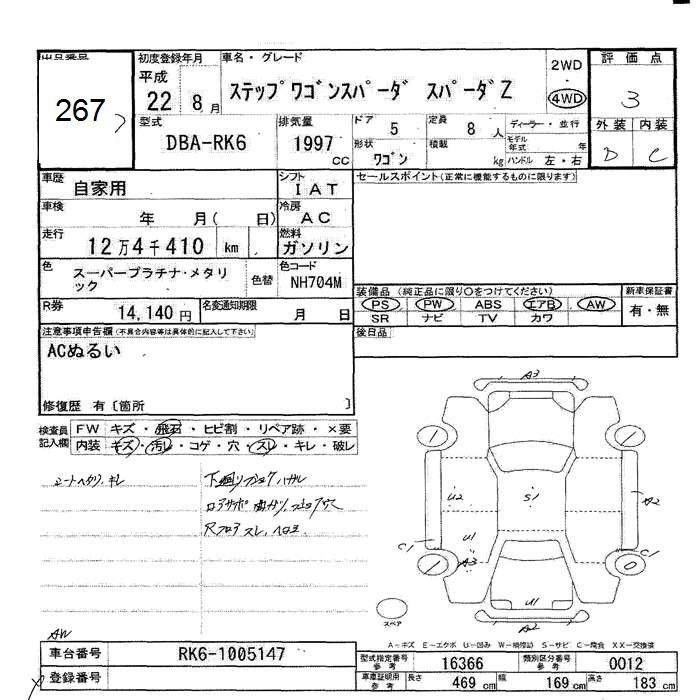 出品番号
267
初度登録年月
平成
22 8月
車名・グレード
ステップワゴンスパーダ スパーダZ
2WD
4WD
評価点
3
外装 内装
D C
型式
DBA-RK6
排気量
1997
cc
ドア
5
定員
8 人
形状
ワゴン
積載
kg
ディーラー・並行
モデル年式 年
ハンドル 左・右
車歴
自家用
シフト
IAT
車検
年 月( 日)
冷房
AC
走行
12万4千410 km
燃料
ガソリン
色
スーパープラチナ・メタリック
色替
色コード
NH704M
R券
14,140円
名変通知期限
月 日
セールスポイント(正常に機能するものに限ります)
装備品(純正品に限り○をつけてください)
PS PW ABS エアB AW
SR ナビ TV カワ
新車保証書
有・無
後日品
注意事項申告欄(不具合内容等は具体的に記入して下さい)
ACぬるい
修復歴 有〔箇所 〕
検査員記入欄
FW キズ・飛石・ヒビ割・リペア跡・×要
内装 キズ・汚レ・コゲ・穴・スレ・キレ・破レ
シートヘタリ、キレ
A3
U2
S1
A2
U1
A3
C1
C1
U1
A2
スペア
A-キズ E-エクボ U-凹み W-補修跡 S-サビ C-腐食 XX-交換済
AW
車台番号
RK6-1005147
登録番号
型式指定番号
参考
16366
類別区分番号
参考
0012
車庫証明用
参考
長さ
469 cm
幅
169 cm
高さ
183 cm